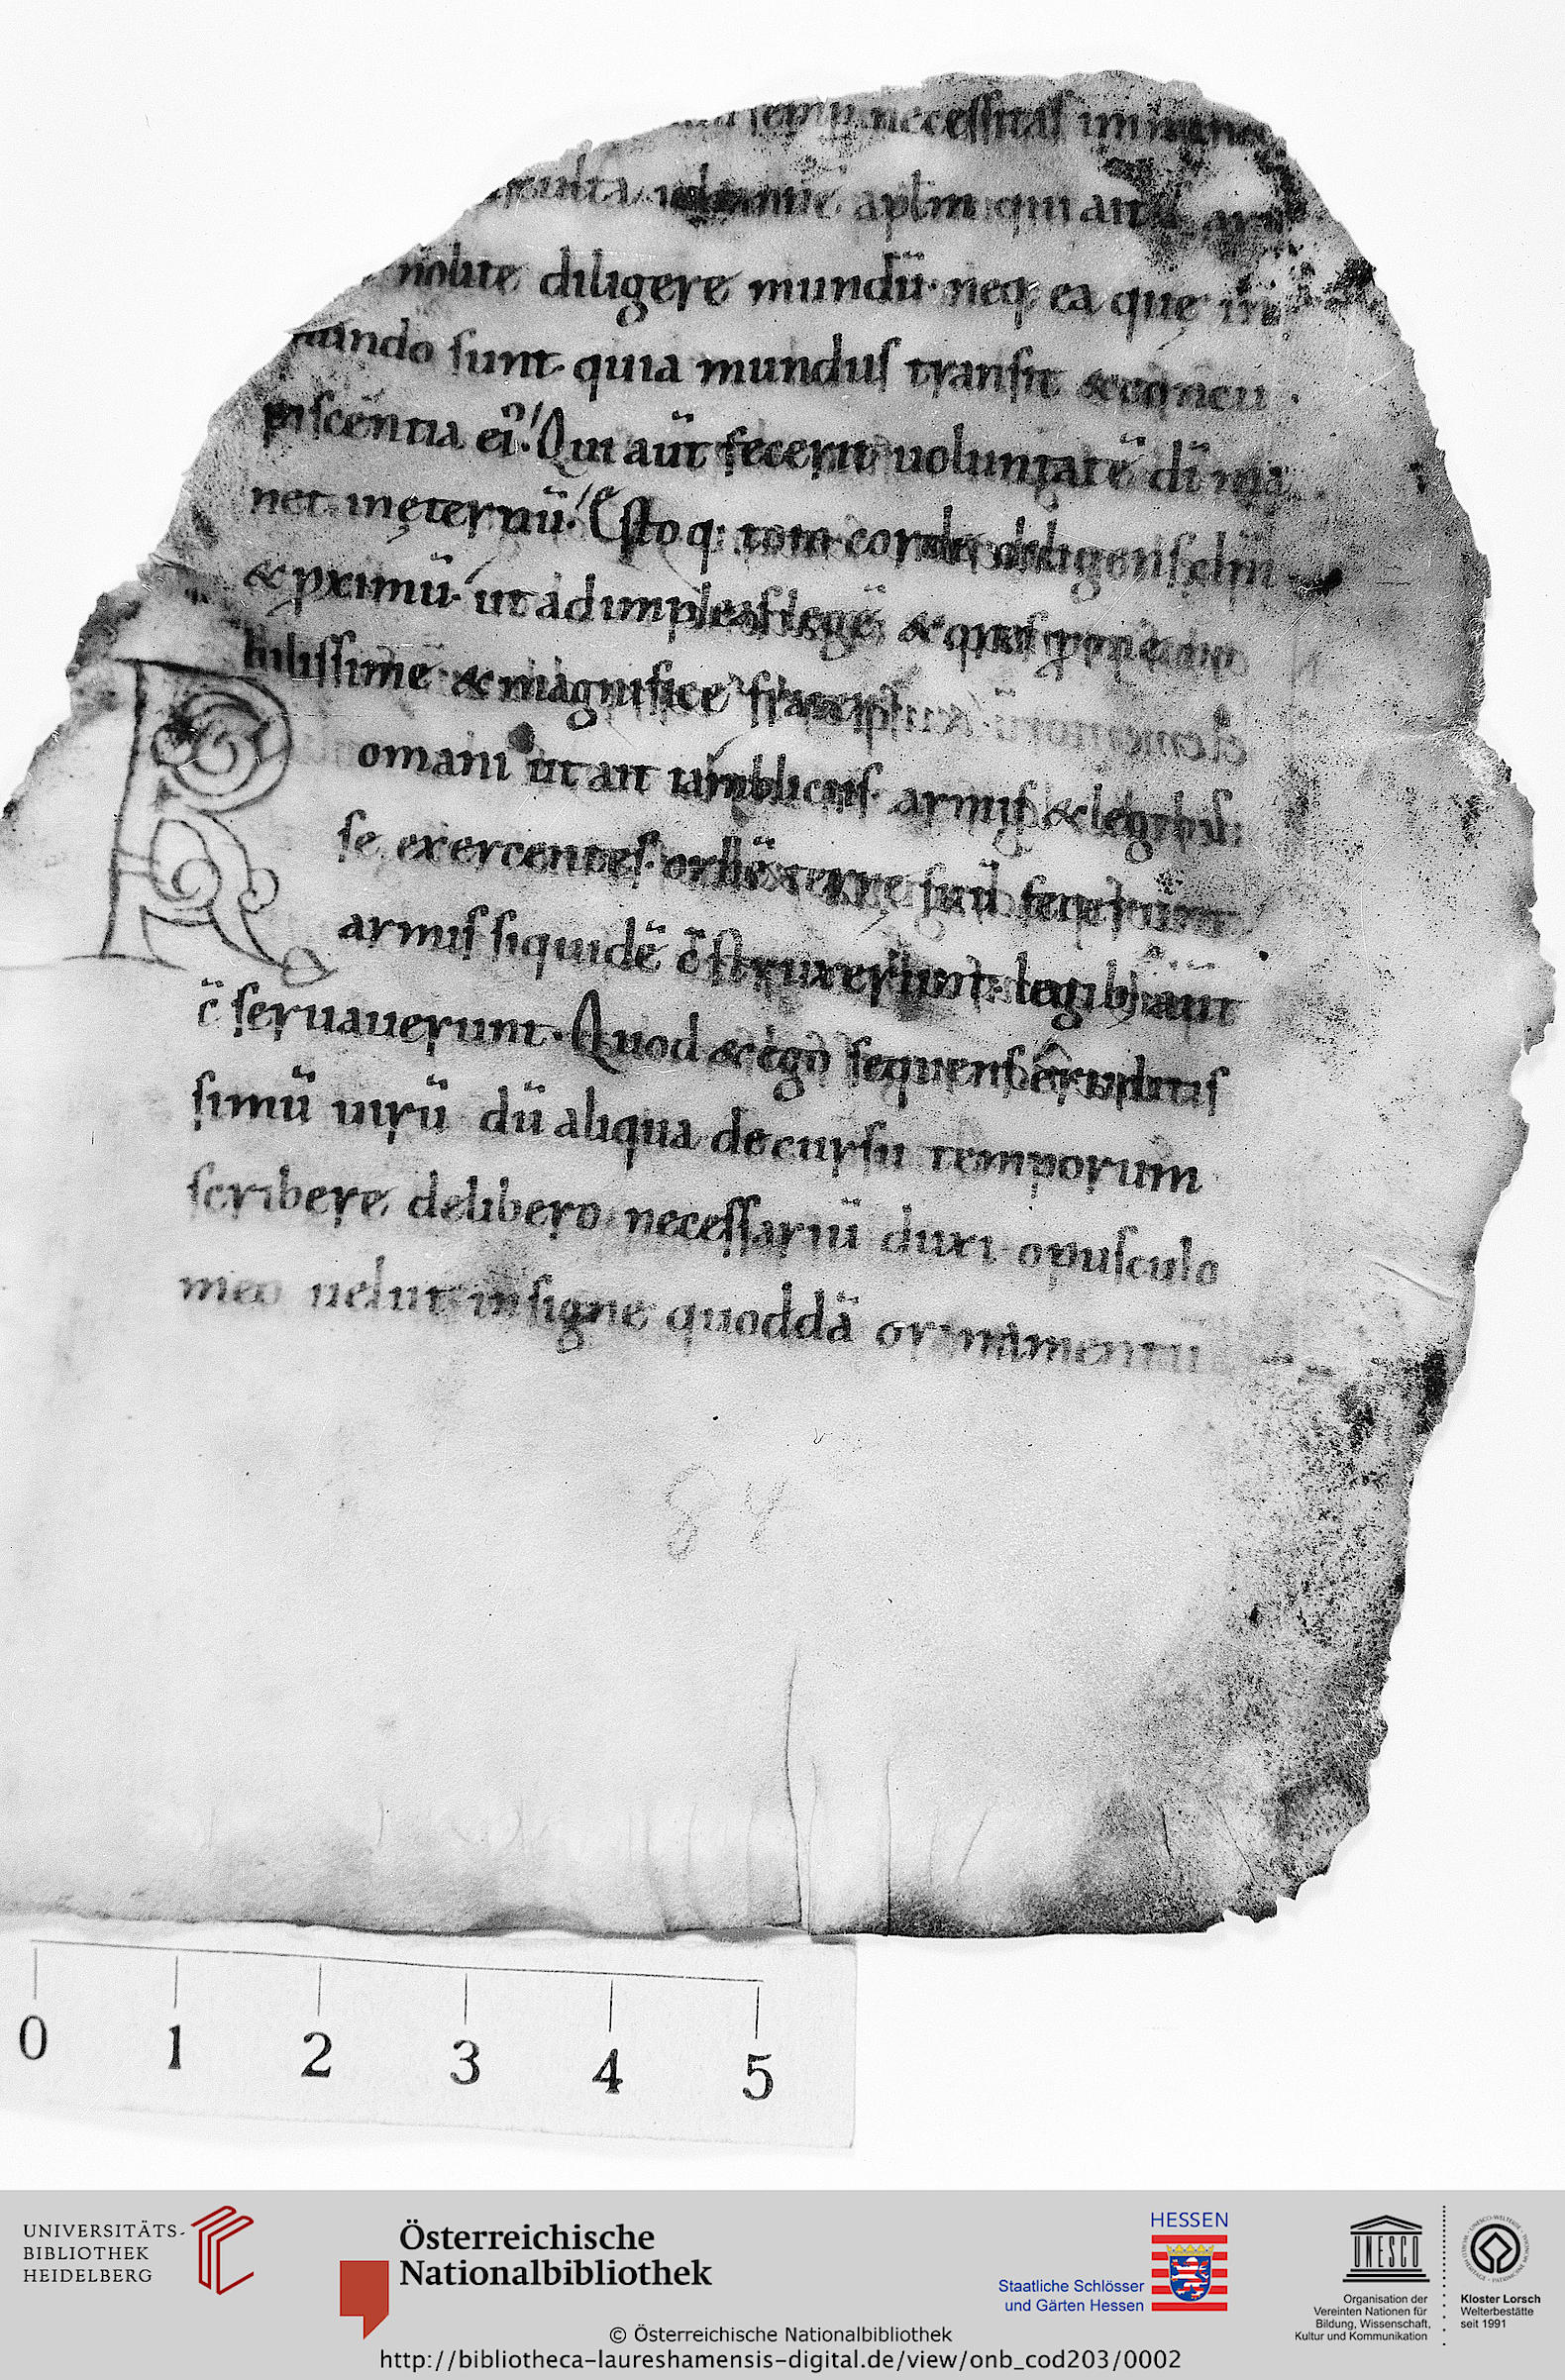 necessitas
aplm qui
nolite diligere mundū· neq; ea que in
mundo sunt· quia mundus transit & concu
piscentia eiꝰ· Qui aūt fecerit uoluntatē di ma
net in ęternū· Esto q; toto corde diligens dm̄
& pximū· ut adimpleas legē &
bilissime & magnifice
omani ut ait iamblicus· armis & legibus
se exercentes· orbē terre
armis siquidē c̄struxerunt· legibꝰ aūt
c̄seruauerunt· Quod & ego sequens
simū uirū dū aliqua de cursu temporum
scribere delibero necessariū duxi opusculo
meo uelut insigne quoddā ornamentū
84
0 1 2 3 4 5
UNIVERSITÄTS-
BIBLIOTHEK
HEIDELBERG
Österreichische
Nationalbibliothek
HESSEN
Staatliche Schlösser
und Gärten Hessen
UNESCO
Organisation der
Vereinten Nationen für
Bildung, Wissenschaft,
Kultur und Kommunikation
Kloster Lorsch
Welterbestätte
seit 1991
© Österreichische Nationalbibliothek
http://bibliotheca-laureshamensis-digital.de/view/onb_cod203/0002